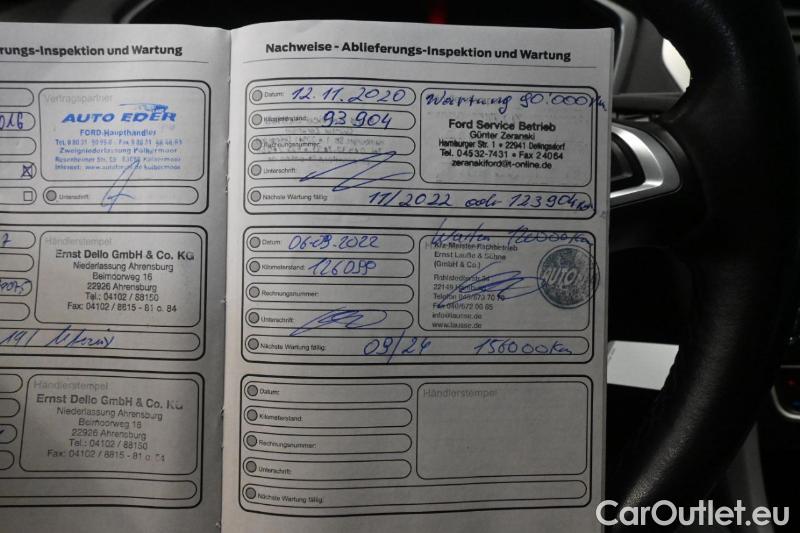 rungs-Inspektion und Wartung
Vertragspartner
AUTO EDER
FORD-Haupthändler
Zweigniederlassung Kolbermoor
Unterschrift:
Händlerstempel
Ernst Dello GmbH & Co. KG
Niederlassung Ahrensburg
Beimoorweg 16
22926 Ahrensburg
Tel.: 04102 / 88150
Fax: 04102 / 8815 - 81 o. 84
Händlerstempel
Ernst Dello GmbH & Co. KG
Niederlassung Ahrensburg
Beimoorweg 16
22926 Ahrensburg
Tel.: 04102 / 88150
Fax: 04102 / 8815 - 81 o. 84
Nachweise - Ablieferungs-Inspektion und Wartung
Datum: 12.11.2020
Kilometerstand: 93904
Rechnungsnummer:
Unterschrift:
Nächste Wartung fällig: 11/2022 oder 123904 Km
Wartung 90.000 Km
Ford Service Betrieb
Günter Zeranski
Hamburger Str. 1 • 22941 Delingsdorf
Tel. 04532-7431 • Fax 24064
zeranskiford@t-online.de
Datum: 06.09.2022
Kilometerstand: 126099
Rechnungsnummer:
Unterschrift:
Nächste Wartung fällig: 09/24 156000 Km
120000 Km
Kfz-Meister-Fachbetrieb
(GmbH & Co.)
22149 Hamburg
AUTO
Datum:
Kilometerstand:
Rechnungsnummer:
Unterschrift:
Nächste Wartung fällig:
Händlerstempel
CarOutlet.eu